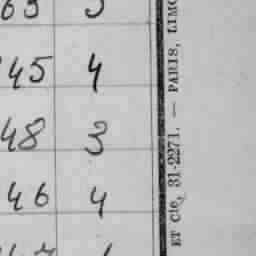 45 4
48 3
46 4
ET Cie, 31-2271. — PARIS, LIMO